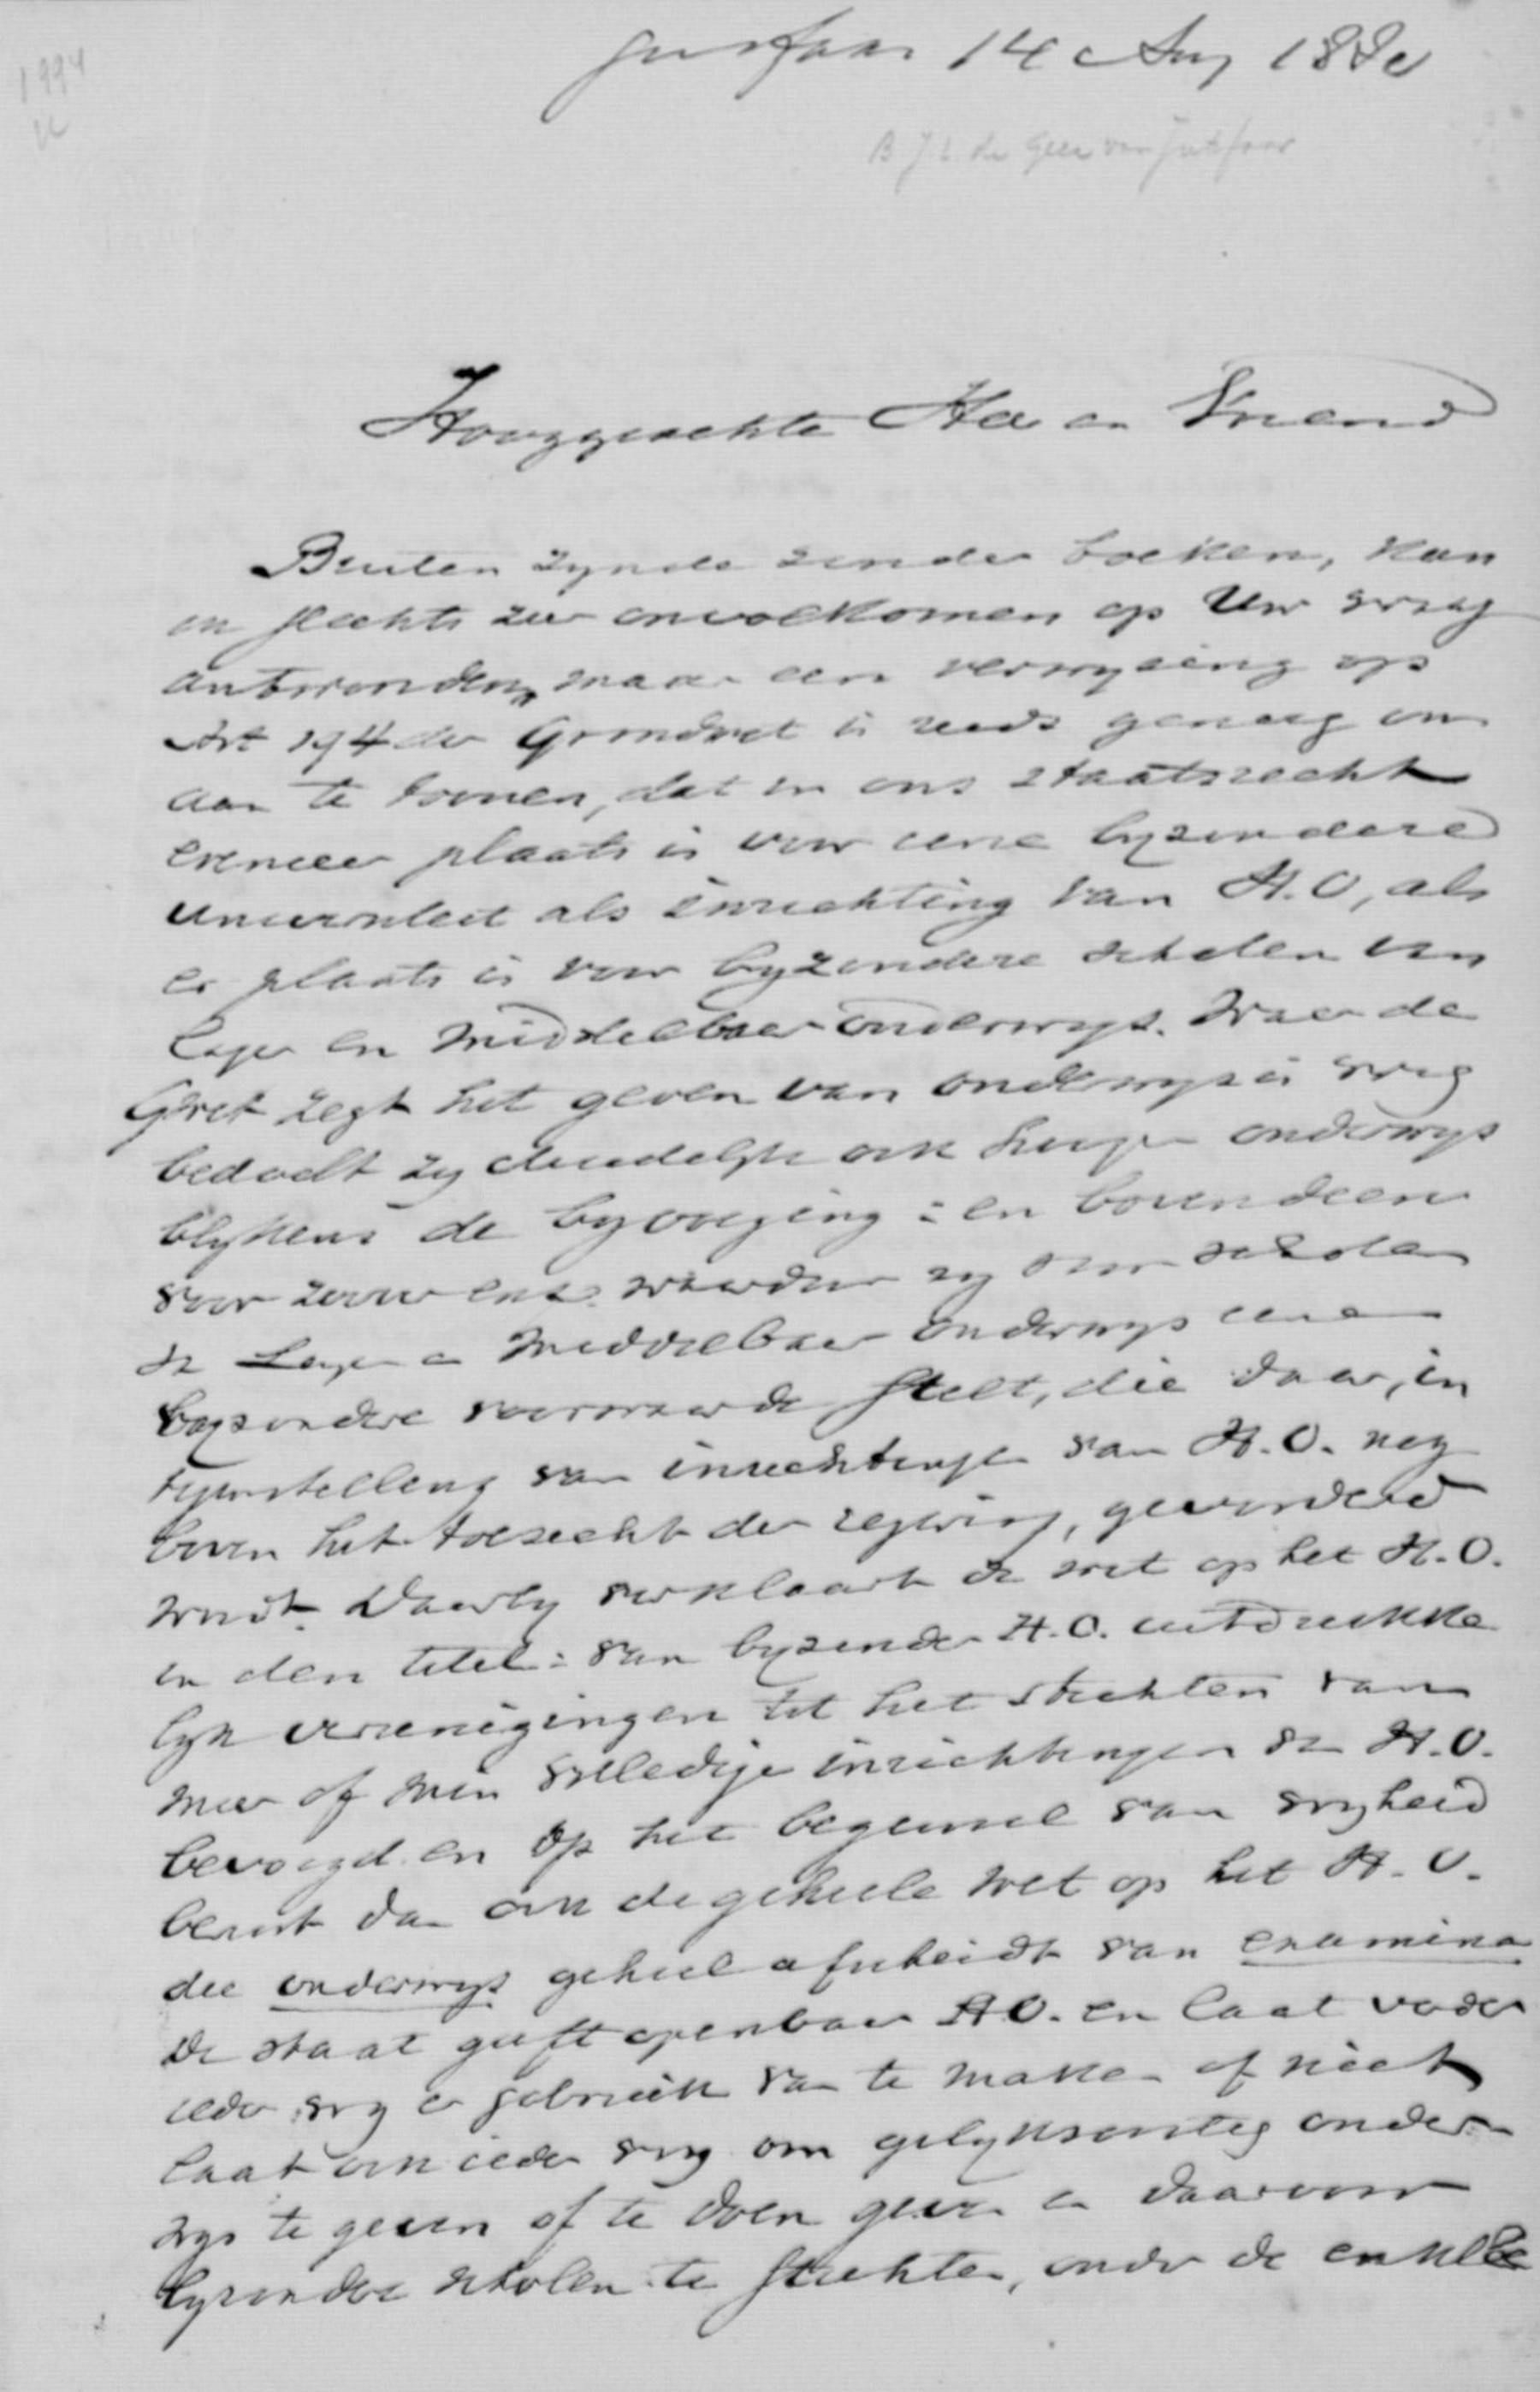 1994
Jutfaas 14 Aug 1880
B J. L. de Geer van Jutfaas
Hooggeachte Heer en Vriend
Buiten zynde zonder boeken, kan
ik slechts zeer onvolkomen op Uw vraag
antwoorden, maar een verwyzing op
Art 194 der Grondwet is reeds genoeg om
aan te toonen, dat in ons staatsrecht
evenzeer plaats is voor eene byzondere
universiteit als inrichting van H.O, als
er plaats is voor byzondere scholen van
lager en middelbaar onderwys. Waar de
Gwet zegt het geven van onderwys is vry
bedoelt zy duidelyk ook hooger onderwys
blykens de byvoeging: en bovendien
voor zoover enz. waardoor zy voor scholen
v Lager en Middelbaar onderwys eene
byzondere voorwaarde stelt, die daar, in
tegenstelling van inrichtingen van H.O. nog
boven het toezicht der regering, gevorderd
wordt. Daarby verklaart de wet op het H.O.
in den titel: van byzonder H.O. uitdrukke
lyk vereenigingen tot het stichten van
meer of min volledige inrichtingen v H.O.
bevoegd en op het beginsel van vryheid
berust dan ook de geheele wet op het H.O.
die onderwys geheel afscheidt van examina
De staat geeft openbaar H.O. en laat
ieder vry er gebruik van te maken of niet
laat ook ieder vry om gelyksoortig onder
wys te geven of te doen geven en daarvoor
byzondere scholen te stichten, onder de enkele